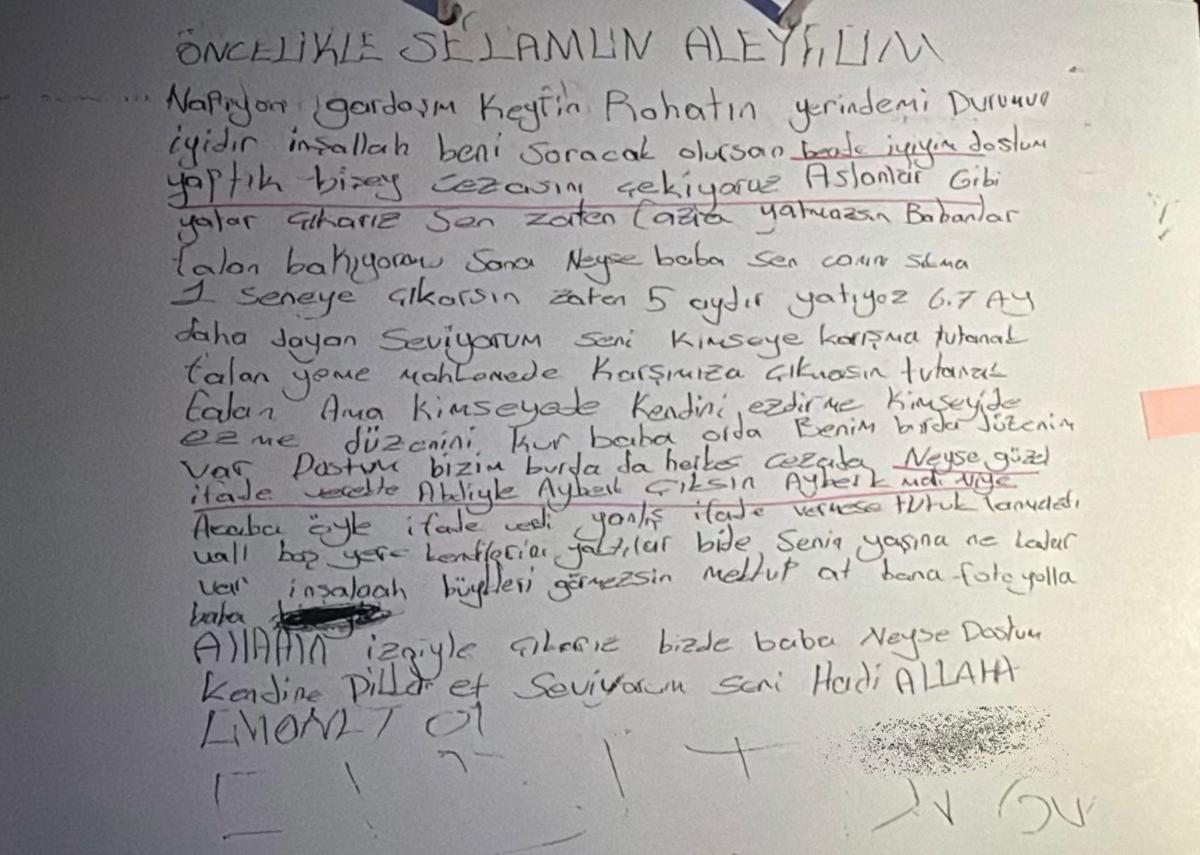 ÖNCELİKLE SELAMUN ALEYKUM
Napıyon gardaşım Keyfin Rahatın yerindemi Durumun
iyidir inşallah beni soracak olursan bende iyiyim dostum
yaptık bizey cezasını çekiyoruz Aslanlar Gibi
yatar çıkarız Sen zaten fazla yatmazsın Babanlar
falan bakıyorum Sana Neyse baba sen canın sıkma
1 seneye çıkarsın zaten 5 aydır yatıyoz 6.7 AY
daha dayan Seviyorum seni Kimseye karışma tutanak
falan yeme mahkemede Karşımıza çıkmasın tutanak
falan Ama kimseyede Kendini ezdirme Kimseyide
ezme düzenini kur baba orda Benim burda düzenim
var Dostum bizim burda da herkes cezada Neyse güzel
ifade verde Abeliyle Ayberk Çıksın Ayberk niye
Acaba öyle ifade verdi yanlış ifade vermese tutuk
vall boş yere kendilerini yaktılar bide Senin yaşına ne kadar
var inşalaah büyükleri görmezsin mektup at bana foto yolla
baba
ALLAHIN izniyle çıkarız bizde baba Neyse Dostum
Kendine Dikkat et Seviyorum seni Hadi ALLAHA
EMANET Ol